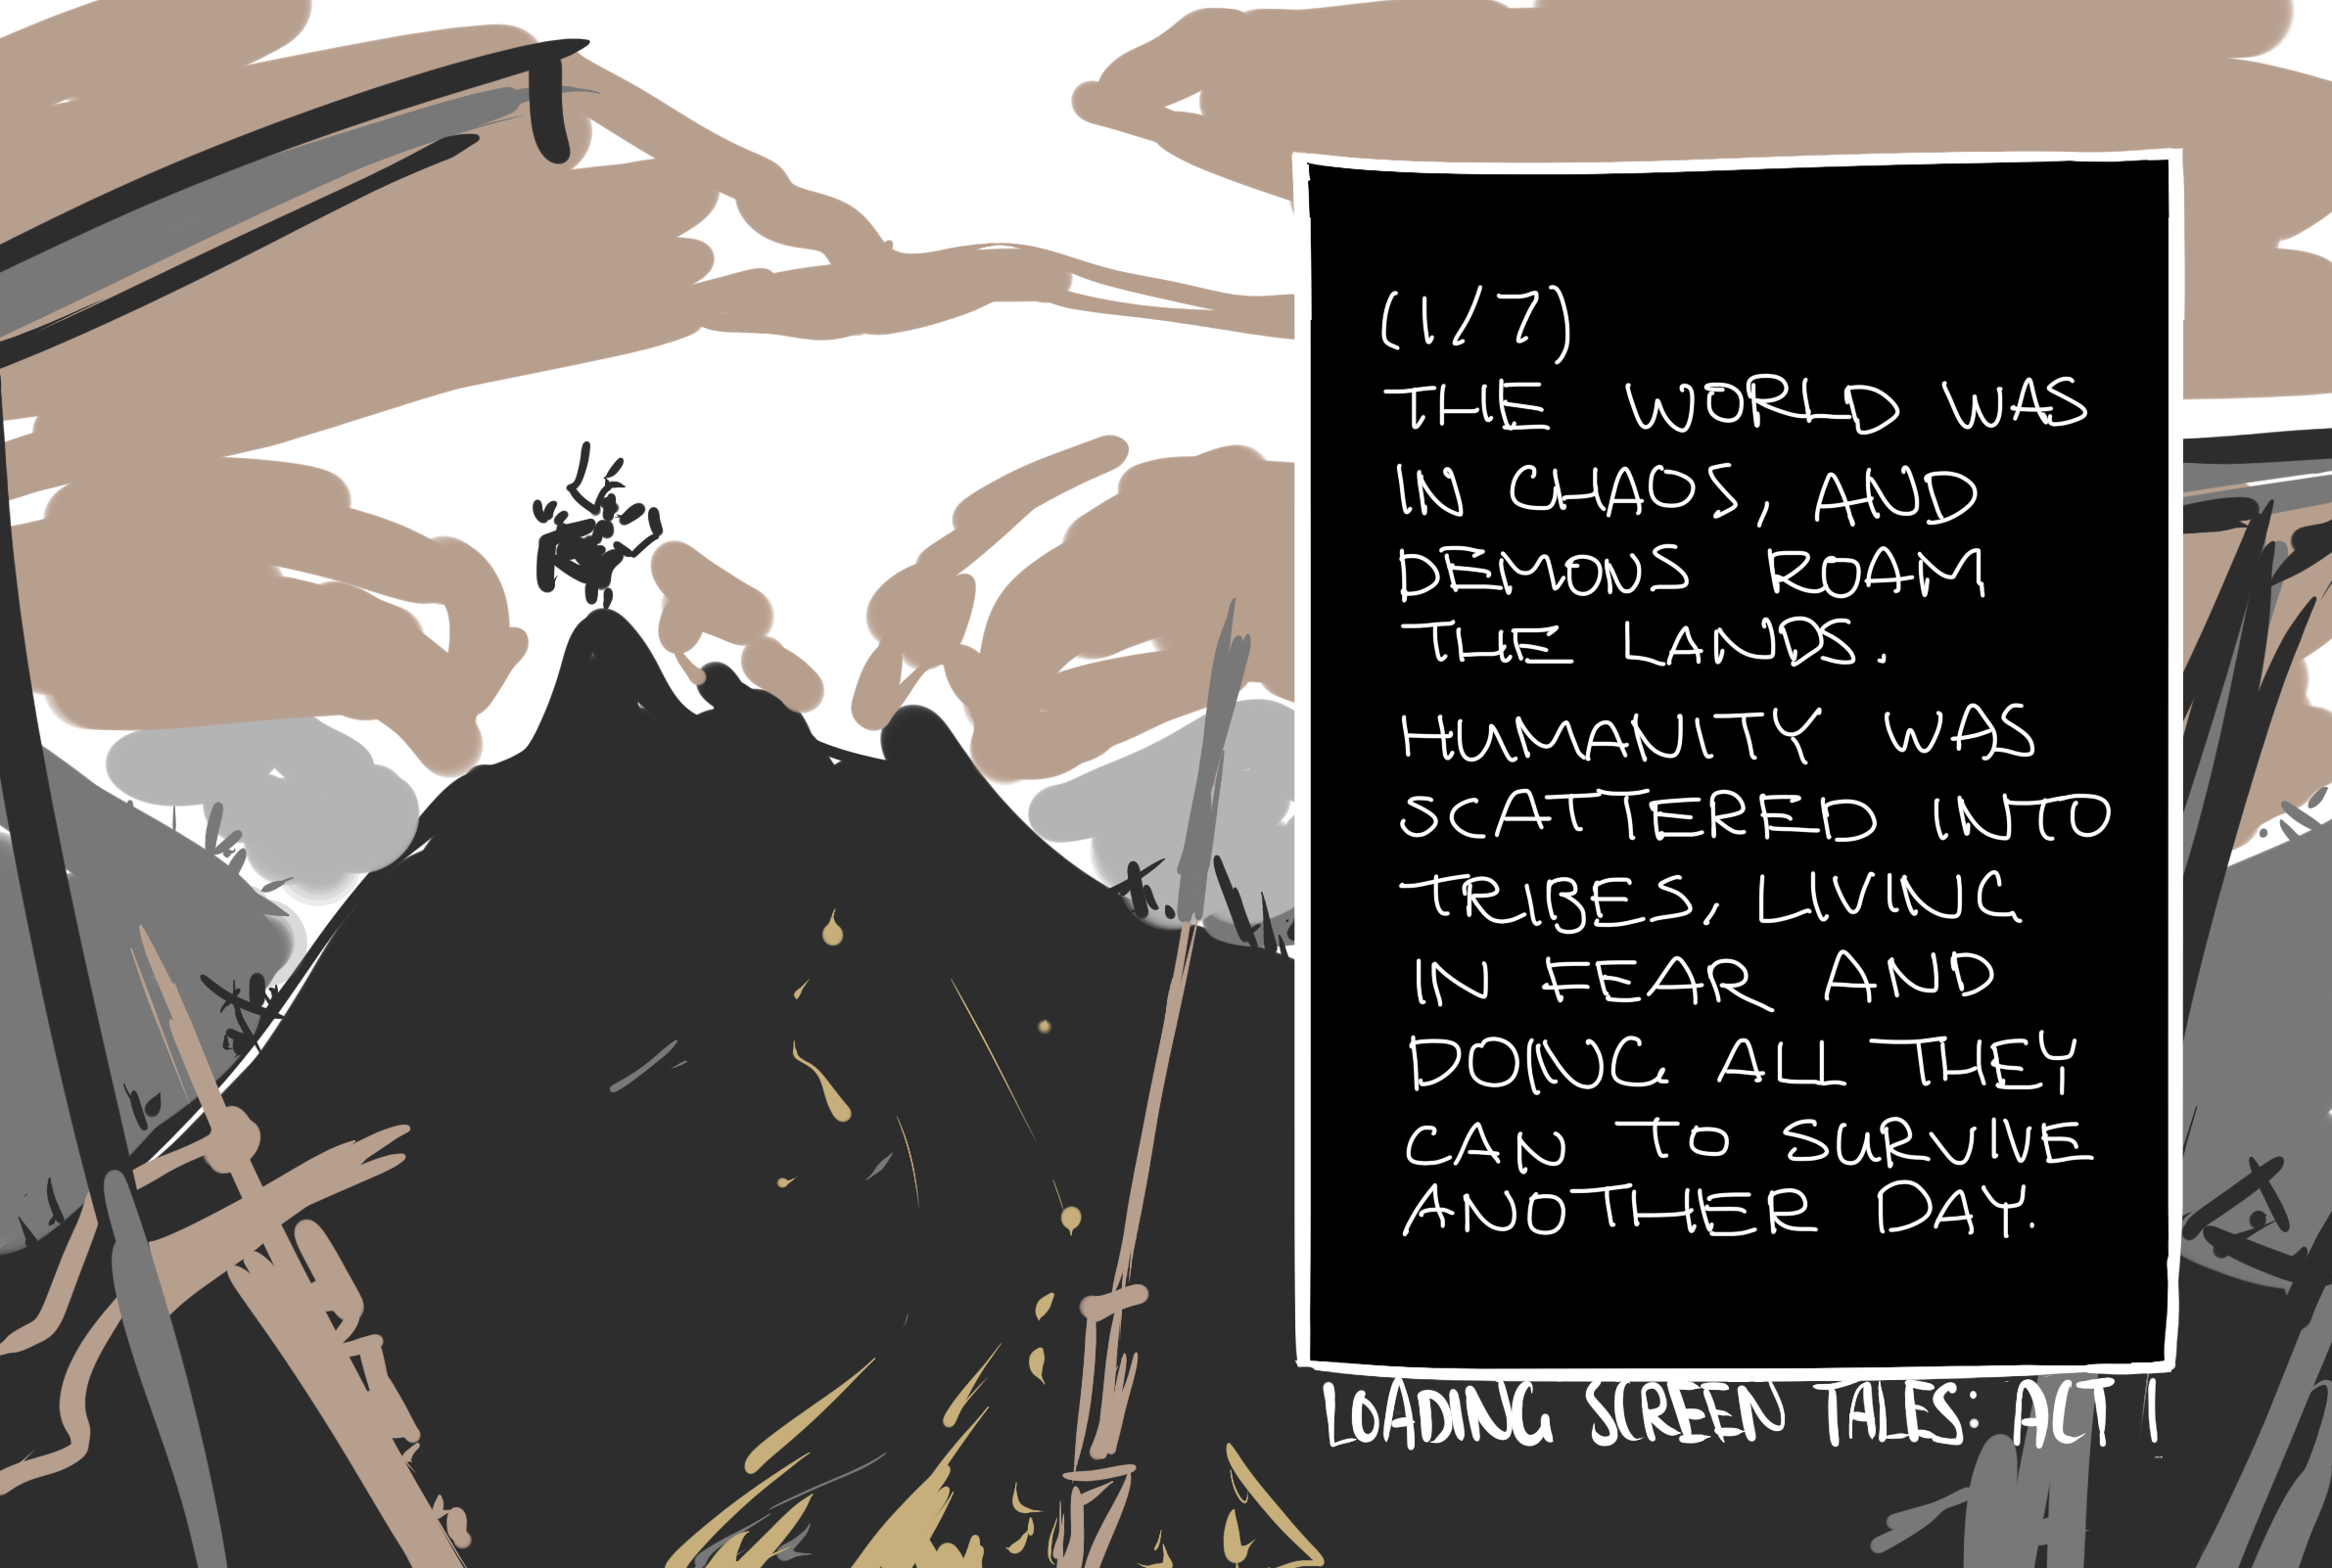 (1/7)
THE WORLD WAS
IN CHAOS, AND
DEMONS ROAM
THE LANDS.
HUMANITY WAS
SCATTERED INTO
TRIBES, LIVING
IN FEAR AND
DOING ALL THEY
CAN TO SURVIVE
ANOTHER DAY.
LOADING SCREEN TALES: ACT I